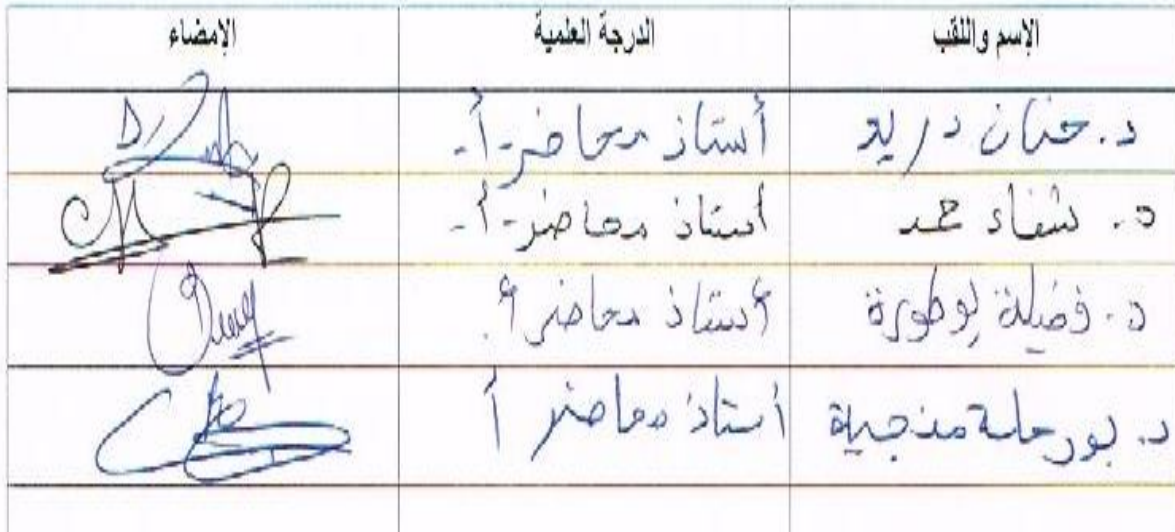 الإسم واللقب الدرجة العلمية الإمضاء
د. حنان دريد أستاذ محاضر -أ-
د. شفاء محمد أستاذ محاضر -أ-
د. فضيلة بوطورة أستاذ محاضر أ
د. بورحلة أستاذ محاضر أ